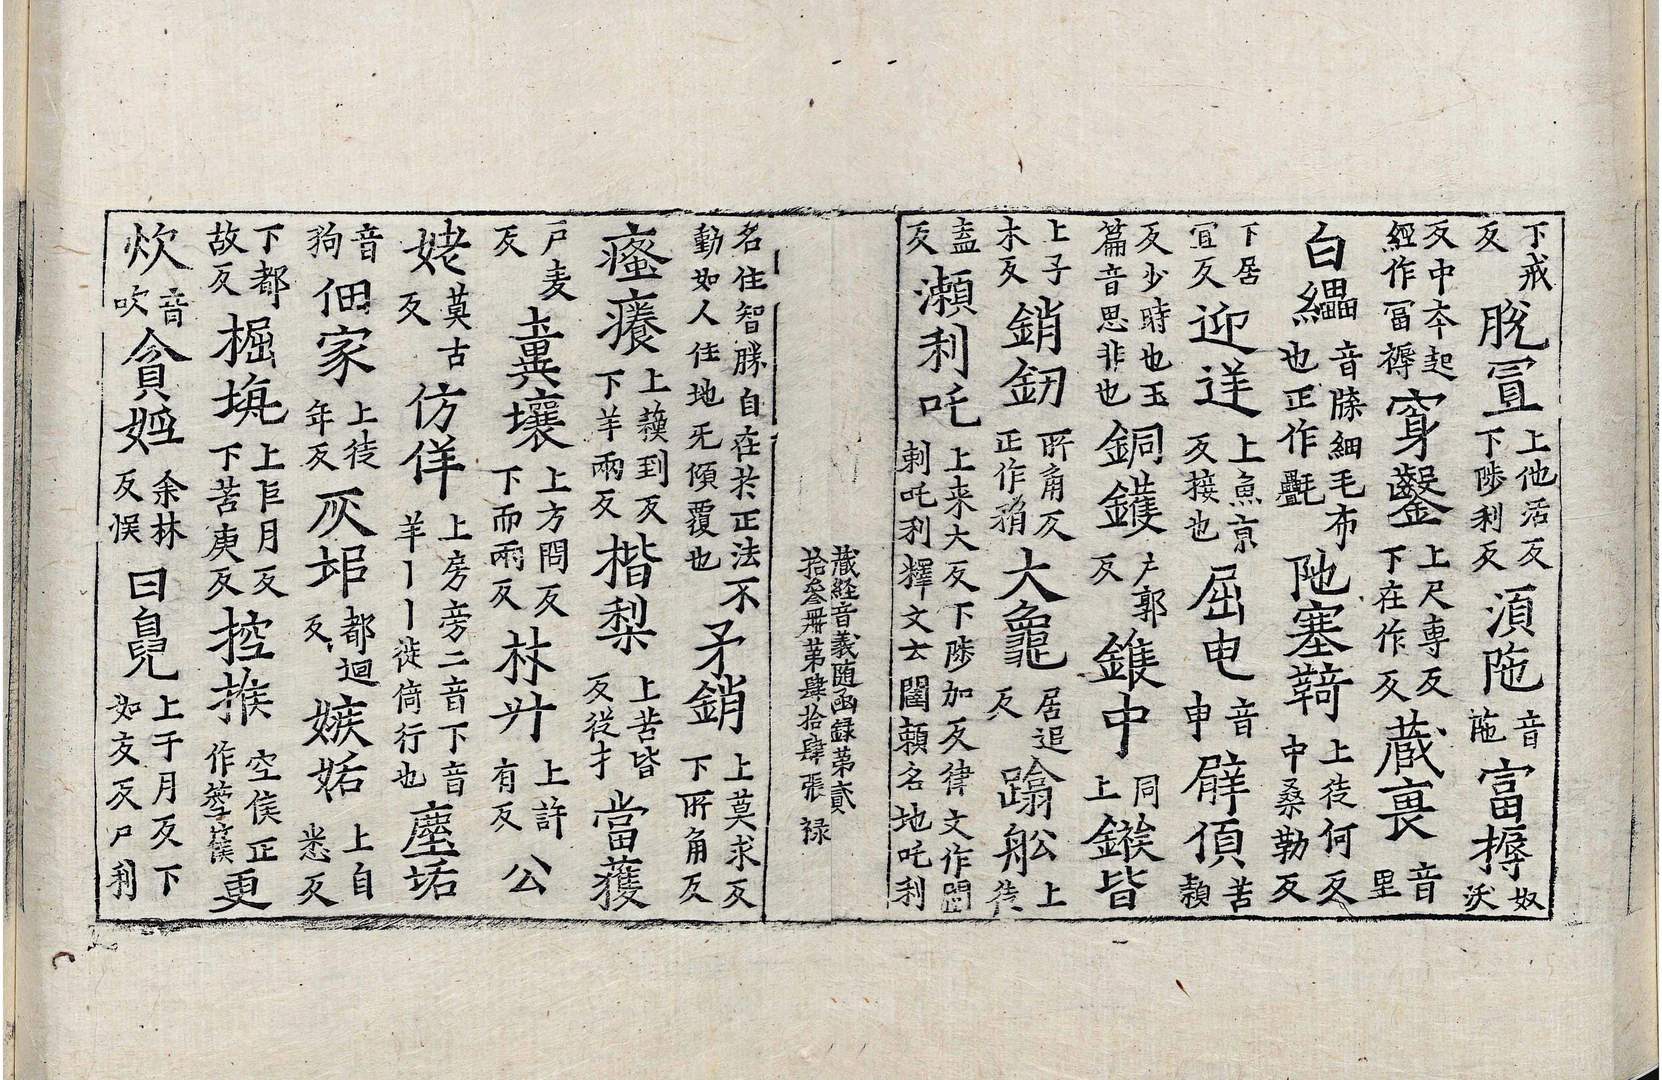 下戒反 脫罝 上他活反下陟利反 湏陁 音陁 富搙 奴沃
反中夲起經作冨褥 穿鑿 上尺専反下在作反 蔵裏 音里
白㲲 音牒細毛布也正作氎 阤塞鞯 上徒何反中桑勒反
下居冝反 迎逆 上魚京反接也 屈电 音申 臂傾 苦頴
反少時也玉篇音思非也 銅鑊 户郭反 鑊中 同上 鏃皆
上子木反 銷釰 所角反正作矟 大龜 居追反 蹹舩 上徒
盍反 瀬利吒 上来大反下陟加反律文作闍剌吒利擇文云闍頼名地吒利
蔵経音義随函録第貳拾叄冊第肆拾肆張 禄
名住智勝自在扵正法不動如人住地无傾覆也 矛銷 上莫求反下所角反
瘙癢 上蘓到反下羊兩反 楷梨 上苦皆反従扌 當獲
戸麦反 糞壤 上方問反下而兩反 林廾 上許有反 公
姥 莫古反 仿佯 上房旁二音下音羊丨丨徙倚行也 塵垢
音狗 佃家 上徒年反 灰坥 都迴反 嫉妬 上自悉反
下都故反 掘埦 上巨月反下苦庚反 控㨅 空侯正作箜篌 更
炊 音吹 貪婬 余林反悮 曰㒵 上于月反下如友反尸利